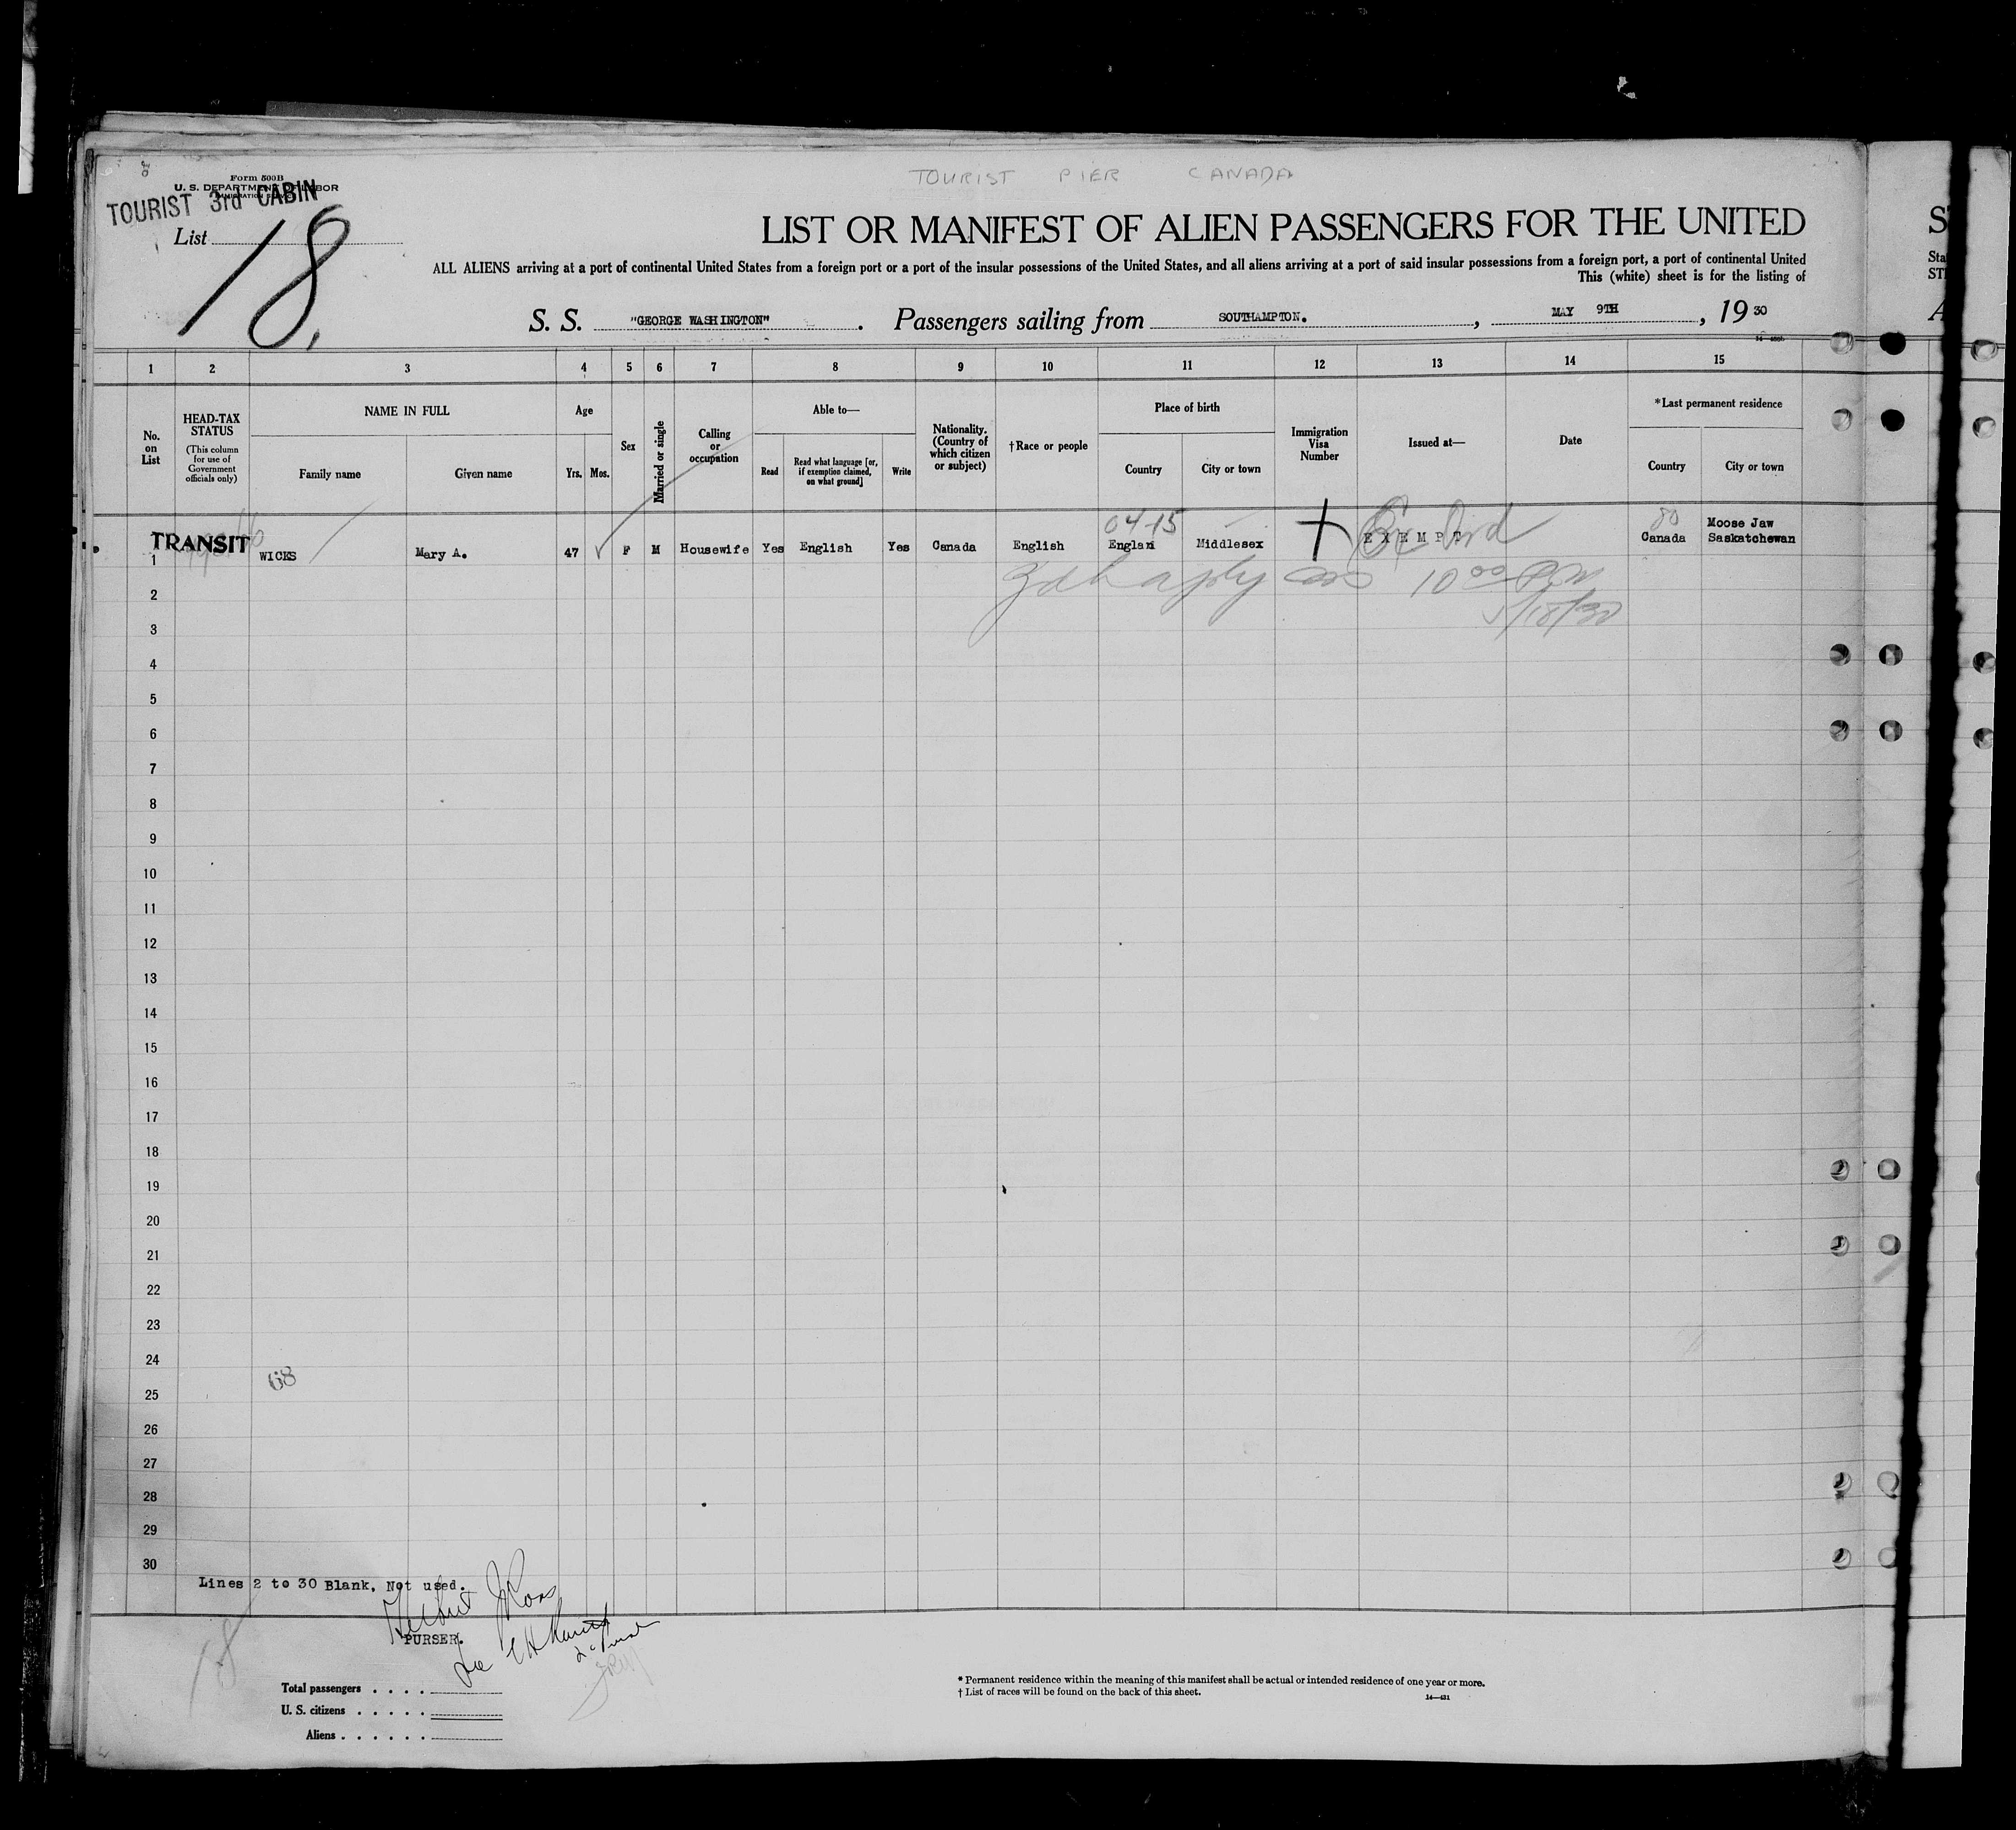 TOURIST PIER CANADA
Form 500B
U. S. DEPARTMENT OF LABOR
TOURIST 3rd CABIN
List 18.
LIST OR MANIFEST OF ALIEN PASSENGERS FOR THE UNITED
ALL ALIENS arriving at a port of continental United States from a foreign port or a port of the insular possessions of the United States, and all aliens arriving at a port of said insular possessions from a foreign port, a port of continental United
This (white) sheet is for the listing of
S. S. "GEORGE WASHINGTON". Passengers sailing from SOUTHAMPTON., MAY 9TH, 1930
1 2 3 4 5 6 7 8 9 10 11 12 13 14 15
No. on List
HEAD-TAX STATUS
(This column for use of Government officials only)
NAME IN FULL
Family name
Given name
Age
Yrs. Mos.
Sex
Married or single
Calling or occupation
Able to—
Read
Read what language [or, if exemption claimed, on what ground]
Write
Nationality. (Country of which citizen or subject)
†Race or people
Place of birth
Country
City or town
Immigration Visa Number
Issued at—
Date
*Last permanent residence
Country
City or town
04-15
80
TRANSIT
1 WICKS Mary A. 47 F M Housewife Yes English Yes Canada English England Middlesex EXEMPT Canada Moose Jaw Saskatchewan
10 00
5/18/30
2
3
4
5
6
7
8
9
10
11
12
13
14
15
16
17
18
19
20
21
22
23
24
68
25
26
27
28
29
30
Lines 2 to 30 Blank, Not used.
PURSER.
18
Total passengers . . . .
U. S. citizens . . . . .
Aliens . . . . . .
* Permanent residence within the meaning of this manifest shall be actual or intended residence of one year or more.
† List of races will be found on the back of this sheet.
14—421